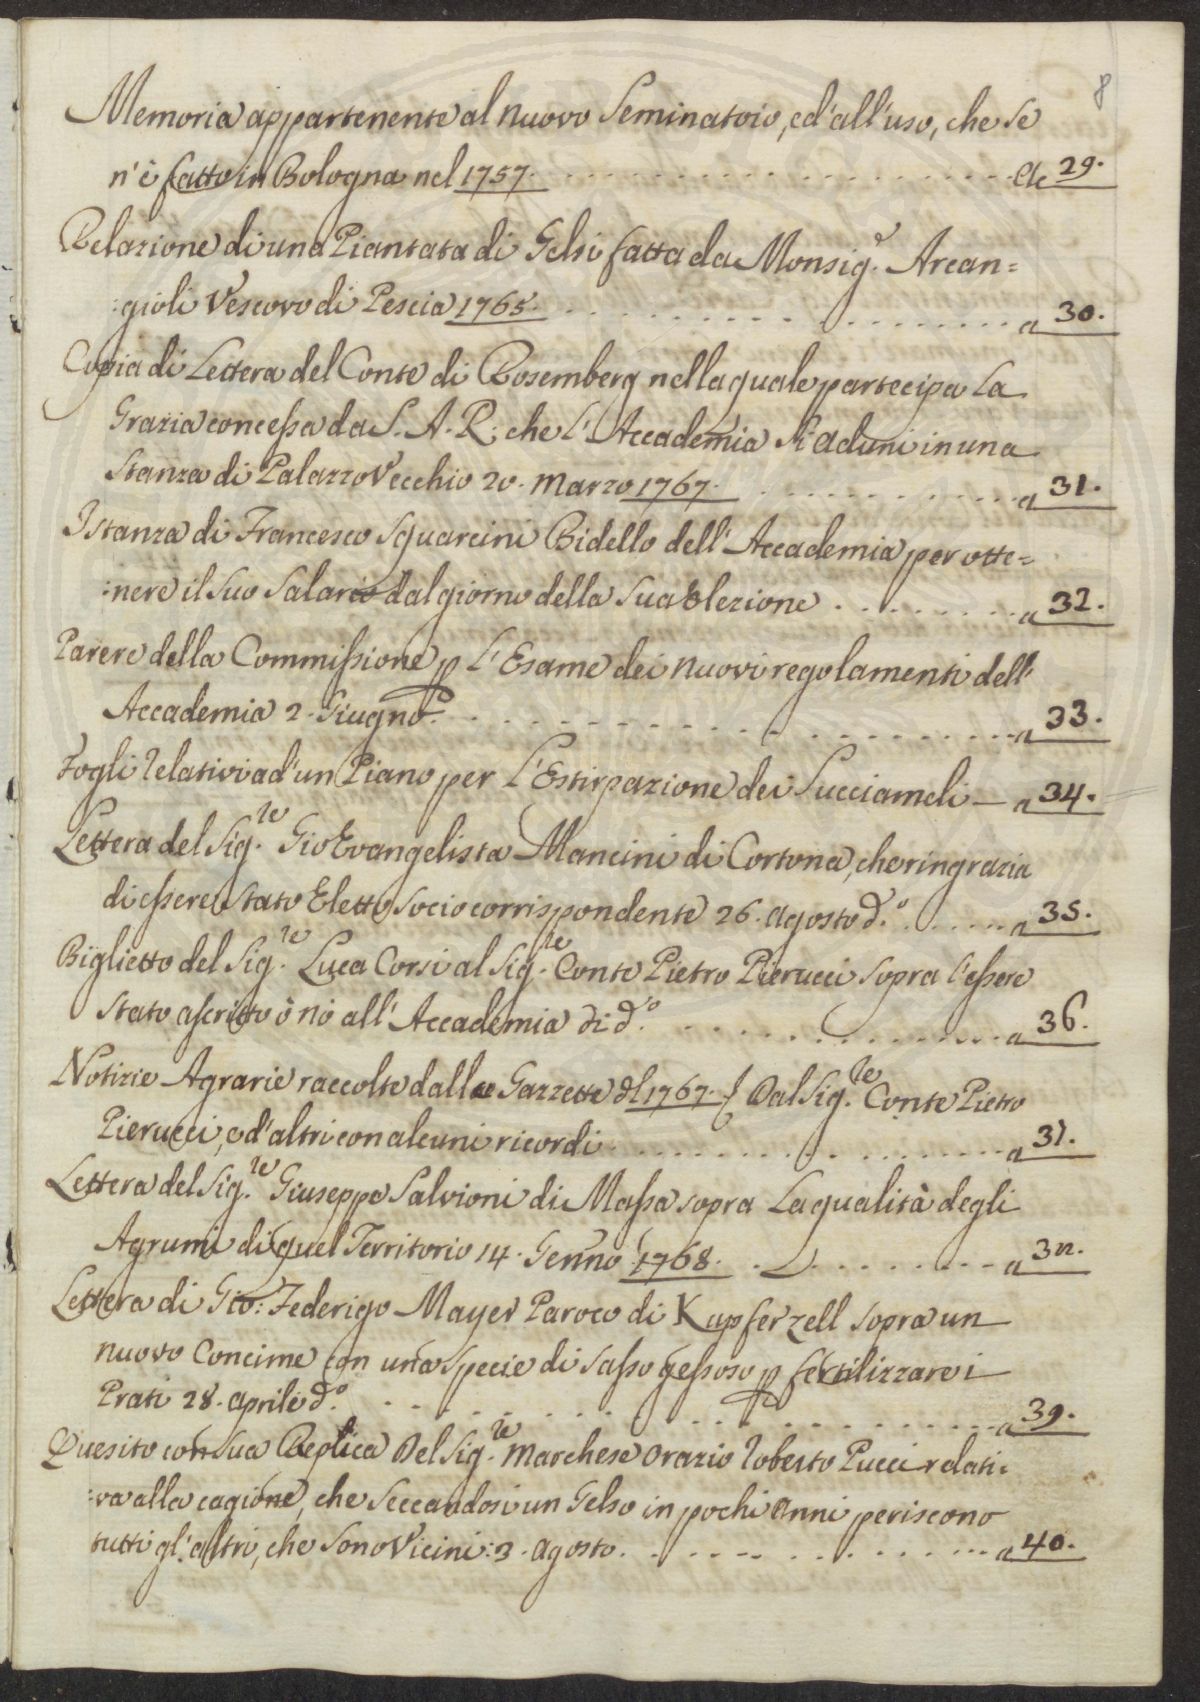 8
Memoria appartenente al nuovo Seminatoio, ed all'uso, che se
n'è fatto in Bologna nel 1757. 29.
Relazione di una Piantata di Gelsi fatta da Monsig.r Arcan=
:gioli Vescovo di Pescia 1765. a 30.
Copia di Lettera del Conte di Rosemberg nella quale partecipa la
Grazia concessa da S. A. R. che l'Accademia si aduni in una
Stanza di Palazzo Vecchio 20. Marzo 1767. a 31.
Istanza di Francesco Squarcini Bidello dell'Accademia per otte=
:nere il suo Salario dal giorno della sua Elezione a 32.
Parere della Commissione p l'Esame dei nuovi regolamenti dell'
Accademia 2. Giugno a 33.
Fogli relativi ad un Piano per l'Estirpazione dei Succiameli — a 34.
Lettera del Sig.re Gio Evangelista Mancini di Cortona, che ringrazia
di essere stato Eletto Socio corrispondente 26. agosto d.o a 35.
Biglietto del Sig.re Luca Corsi al Sig.re Conte Pietro Pierucci sopra l'essere
stato ascritto ò nò all'Accademia di d.o a 36.
Notizie Agrarie raccolte dalle Gazzette del 1767. Dal Sig.re Conte Pietro
Pierucci, ed altri con alcuni ricordi a 37.
Lettera del Sig.re Giuseppe Salvioni di Massa sopra la qualità degli
Agrumi di quel Territorio 14. Genno 1768. a 38.
Lettera di Gio: Federigo Mayer Paroco di Kupferzell sopra un
nuovo Concime con una specie di sasso gessoso p fertilizzare i
Prati 28. aprile d.o a 39.
Quesito con sua Replica Del Sig.re Marchese Orazio Roberto Pucci relati=
:va alla cagione, che seccandosi un Gelso in pochi anni periscono
tutti gl'altri, che sono Vicini: 3. agosto. a 40.